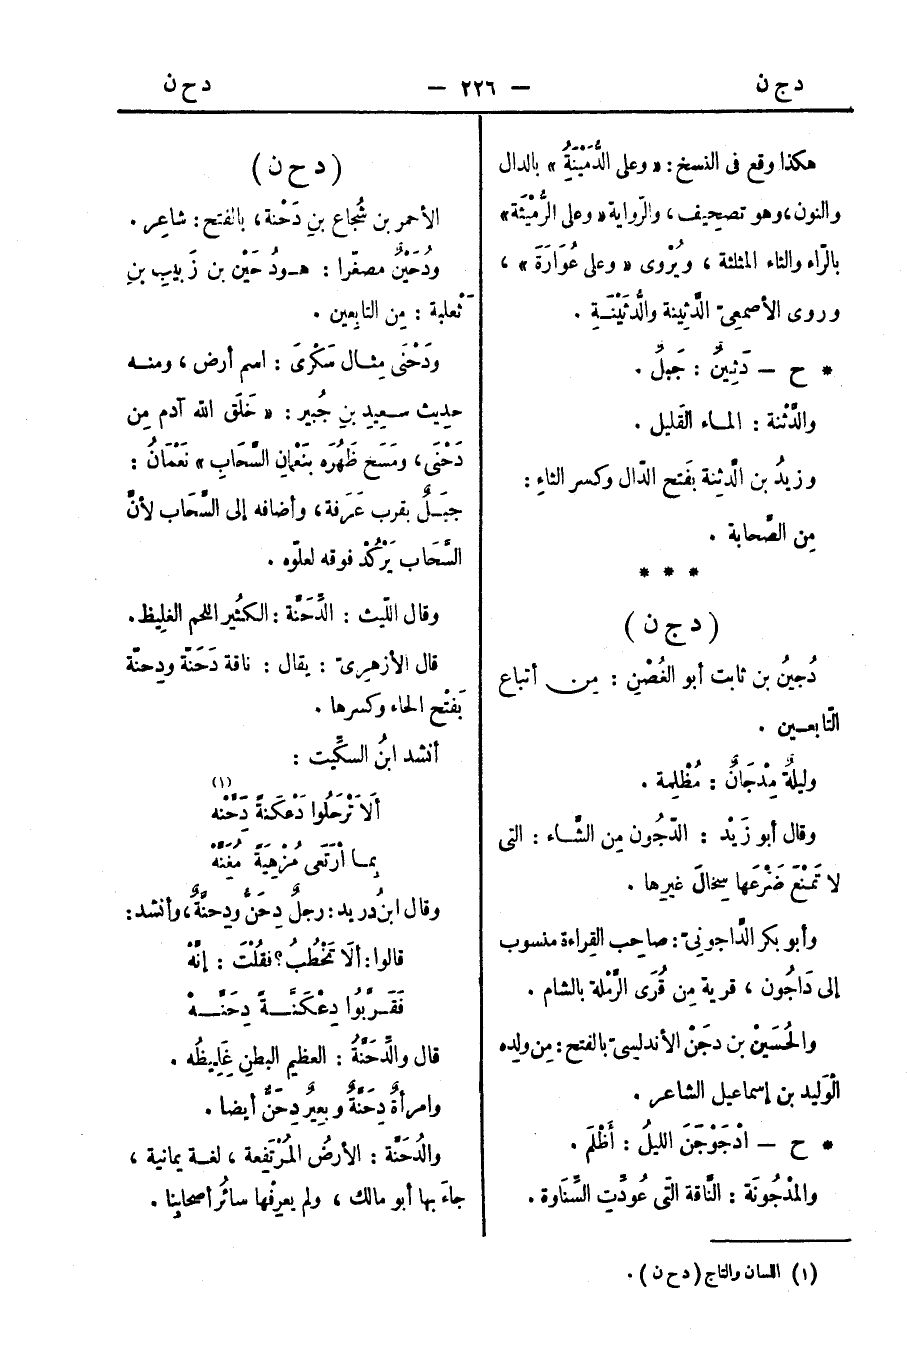 دجن — ٢٢٦ — دحن
هكذا وقع فى النسخ: « وعلى الدُّمَيْنَةُ » بالدال
والنون، وهو تصحيف، والرّواية « وعلى الرُّمَيْثَة »
بالرّاء والثاء المثلثة ، ويُرْوى « وعلى عُوَارَةَ » ،
وروى الأصمعىّ الدَّثِينة والدُّثَيْنَـةِ .
* ح — دَثِينٌ : جَبلٌ .
والدَّثْنة : المـاء القَليل .
وزيدُ بن الدَّثِنة بفَتح الدّال وكسر الثاءِ :
مِن الصَّحابة .
* * *
( دجن )
دُجينُ بن ثابت أبو الغُصْنِ : مِن أتباع
التّابعـين .
وليلةٌ مِدْجَانٌ : مُظْلِمة .
وقال أبو زَيْد : الدّجُون مِن الشَّاء : التى
لا تَمْنَعَ ضَرْعَها سِخالَ غيرِها .
وأبو بكر الدَّاجونىّ : صاحب القِراءة منسوب
إلى دَاجُون ، قرية مِن قُرَى الرَّمْلة بالشام .
والحُسَينْ بن دجَنْ الأندلسىّ بالفتح : مِن ولده
الْوَليد بن إسماعيل الشاعر .
* ح — ادْجَوْجَنَ الليلُ : أَظْلَم .
والمدْجُونَة : النَّاقة التَّى عُودِّت السِّنَاوة .
( دحن )
الأحمر بن شُجاع بنِ دَحْنة ، بالفتح : شاعر .
ودُحَيْنٌ مصغّرا : هـو دُحَيْن بن زَبيبِ بنِ
ثَعْلبة : مِن التابعين .
ودَحْنَى مِثـال سَكْرَىَ : اسم أرض ، ومنـه
حديث سـعِيدِ بنِ جُبير : « خَلَق الله آدم مِن
دَحْنَى ، ومَسَح ظَهْرَه بنَعْمانِ السَّحَابِ » نَعْمَانُ :
جبَـلٌ بقرب عَرَفة ، وأضافه إلى السَّحَاب لأنَّ
السَّحَاب يَرْكُدْ فوقه لعلوّه .
وقال اللّيث : الدِّحَنَّة : الكثير اللحم الغلِيظ .
قال الأزهرىّ : يقال : ناقة دَحَنَّة ودِحِنّة
بَفتْح الحاء وكسرها .
أنشد ابنُ السكِّيت :
ألَا تَرْحَلُوا دَعْكَنةً دِحَّنْه (١)
بِمـا اْرَتَعَى مُزْهِيَةً مُغِنَّهْ
وقال ابن دُريد : رجلٌ دِحَنٌّ ودِحَنَّةٌ ، وأنشد :
قالوا : ألَا تَخْطُبُ ؟ فقُلْتَ : إنَّهْ
فَقَـرَّبُوا دِعْكَنَّــةً دِحَنَّـــهْ
قال والدِّحَنَّةُ : العظيم البطنِ غَلِيظُه .
وامرأةٌ دِحَنَّةٌ وبعيرٌ دِحَنٌّ أيضا .
والدُحَنَّة : الأرضُ المُرْتَفعة ، لغـة يمانية ،
جاءَ بها أبو مالك ، ولم يعرِفْها سائرُ أصحابِنا .
(١) اللسان والتاج ( دحن ) .